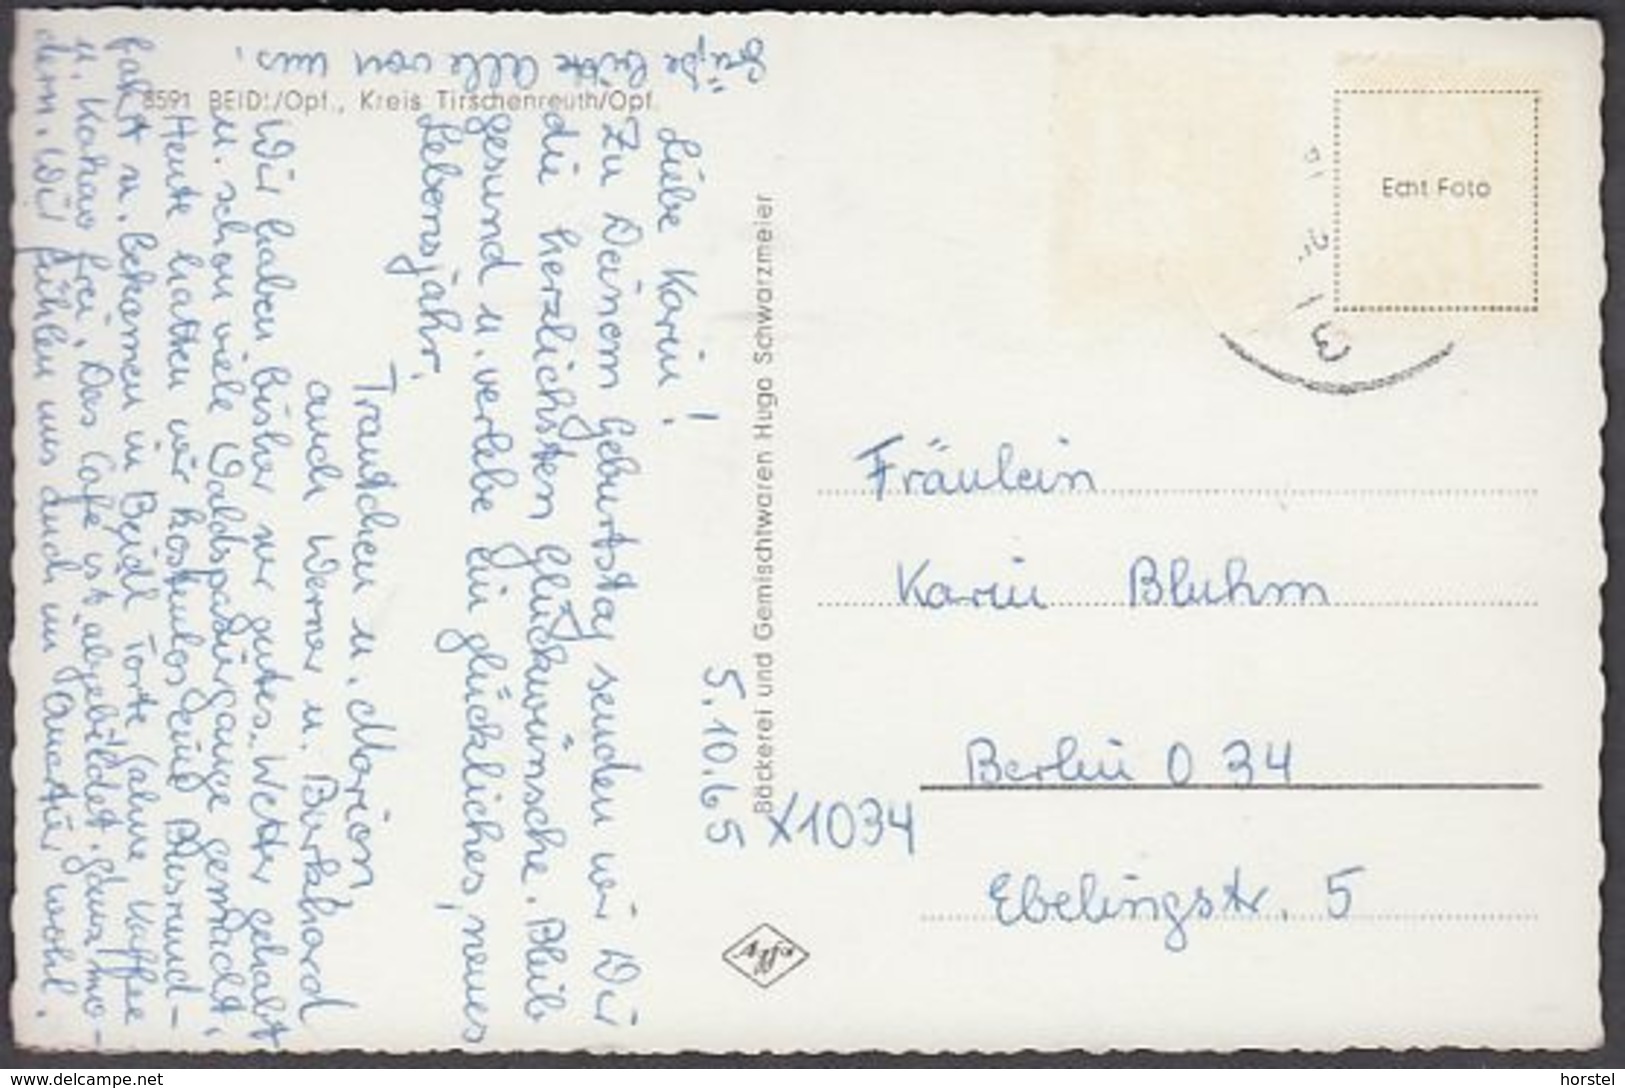 8591 BEIDL/Opf., Kreis Tirschenreuth/Opf.
Bäckerei und Gemischtwaren Hugo Schwarzmeier
Echt Foto
Agfa
5.10.65
Liebe Karin!
Zu Deinem Geburtstag senden wir Dir
die herzlichsten Glückwünsche. Bleib
gesund u. verlebe ein glückliches, neues
Lebensjahr.
Trautchen u. Marion
auch Werner u. Burkhard
Wir haben bisher nur gutes Wetter gehabt
u. schon viele Waldspaziergänge gemacht.
Heute hatten wir kostenlos eine Busrund-
fahrt u. bekamen in Beidl Torte, Sahne, Kaffee
u. Kakao frei. Das Cafe ist abgebildet. Ganz mo-
dern. Wir fühlen uns auch im Quartier wohl.
Grüße bitte alle von uns.
Fräulein
Karin Bluhm
Berlin O 34
X1034
Ebelingstr. 5
horstel
www.delcampe.net